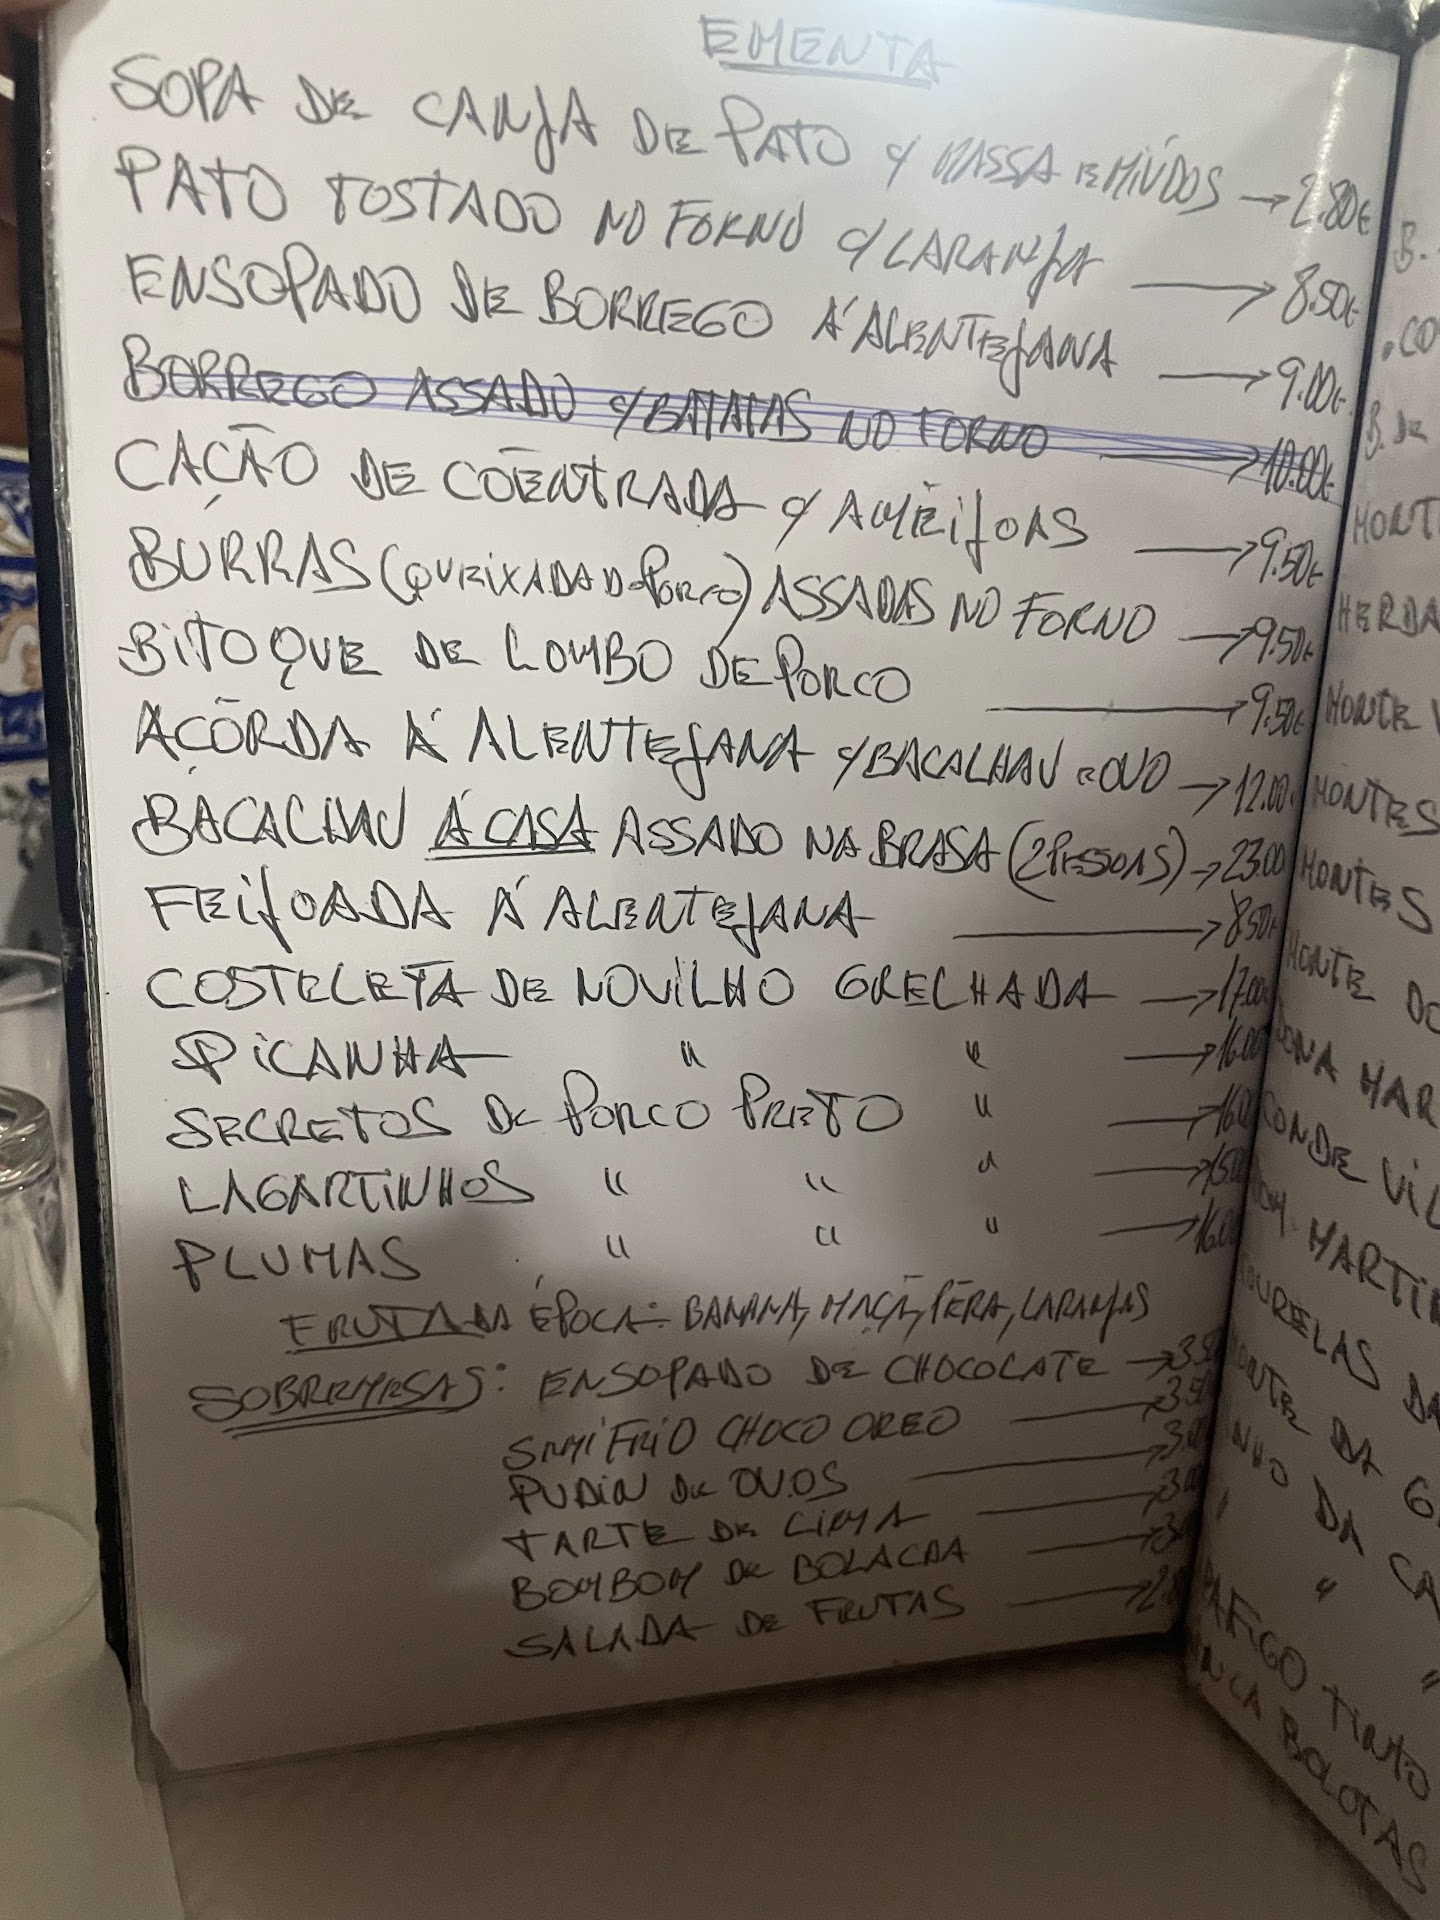 EMENTA
SOPA DE CANJA DE PATO C/ MASSA E MIÚDOS → 2.80€
PATO TOSTADO NO FORNO C/ LARANJA → 8.50€
ENSOPADO DE BORREGO Á ALENTEJANA → 9.00€
BORREGO ASSADO C/ BATATAS NO FORNO → 10.00€
CAÇÃO DE COENTRADA C/ AMÊIJOAS → 9.50€
BURRAS (QUEIXADA D PORCO) ASSADAS NO FORNO → 9.50€
BITOQUE DE LOMBO DE PORCO → 9.50€
AÇÕRDA Á ALENTEJANA C/ BACALHAU E OVO → 12.00
BACALHAU Á CASA ASSADO NA BRASA (2 PESSOAS) → 23.00
FEIJOADA Á ALENTEJANA → 8.50
COSTELETA DE NOVILHO GRELHADA → 17.00
PICANHA " " → 16.00
SECRETOS DE PORCO PRETO " → 16.0
LAGARTINHOS " " " → 15.0
PLUMAS " " " → 16.0
FRUTA DA ÉPOCA: BANANA, MAÇÃ, PÊRA, LARANJAS
SOBREMESAS: ENSOPADO DE CHOCOLATE → 3.5
SEMIFRIO CHOCO OREO → 3.5
PUDIN DE OVOS → 3.0
TARTE DE LIMA → 3.0
BOMBOM DE BOLACHA → 3.
SALADA DE FRUTAS → 2.
B.
.CO
B. DE
MONT
HERDA
MONTE V
MONTES
MONTES
MONTE DO
DONA MAR
CONDE VIL
DOM MARTIN
COURELAS DA
MONTE DA G
INHO DA CA
" " "
PAFIGO TINTO
BOLOTAS